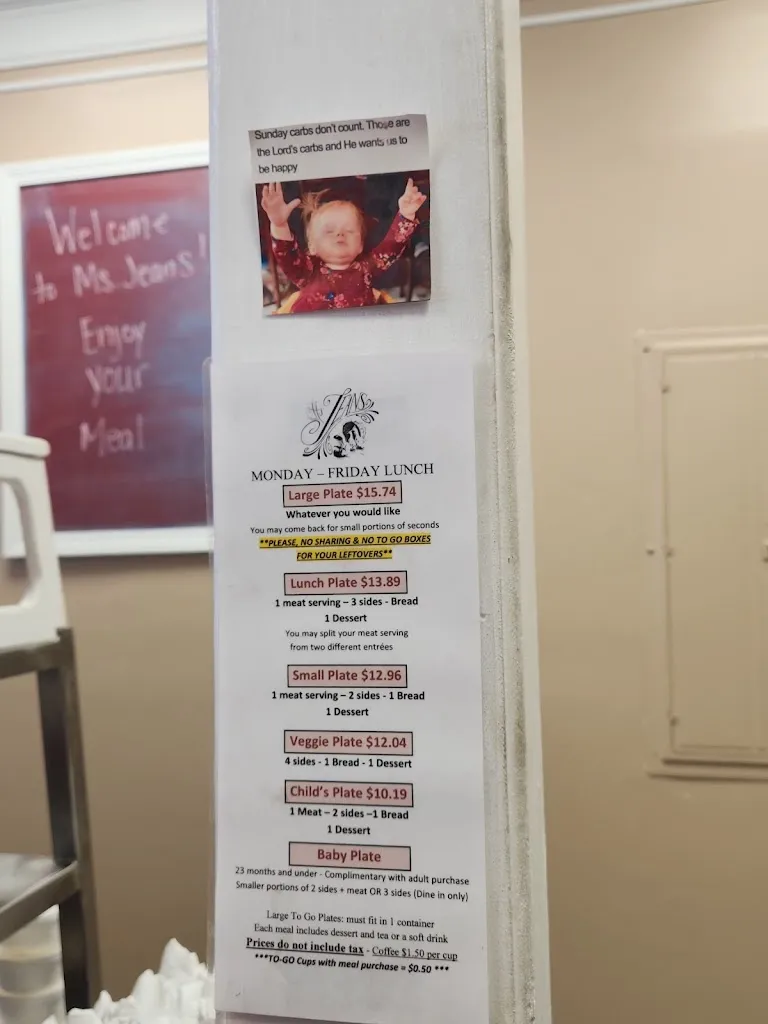 Sunday carbs don't count. Those are
the Lord's carbs and He wants us to
be happy
Welcome
to Ms. Jeans!
Enjoy
your
Meal
JEANS
MONDAY – FRIDAY LUNCH
Large Plate $15.74
Whatever you would like
You may come back for small portions of seconds
**PLEASE, NO SHARING & NO TO GO BOXES
FOR YOUR LEFTOVERS**
Lunch Plate $13.89
1 meat serving – 3 sides - Bread
1 Dessert
You may split your meat serving
from two different entrées
Small Plate $12.96
1 meat serving – 2 sides - 1 Bread
1 Dessert
Veggie Plate $12.04
4 sides - 1 Bread - 1 Dessert
Child's Plate $10.19
1 Meat – 2 sides –1 Bread
1 Dessert
Baby Plate
23 months and under - Complimentary with adult purchase
Smaller portions of 2 sides + meat OR 3 sides (Dine in only)
Large To Go Plates: must fit in 1 container
Each meal includes dessert and tea or a soft drink
Prices do not include tax - Coffee $1.50 per cup
***TO-GO Cups with meal purchase = $0.50 ***